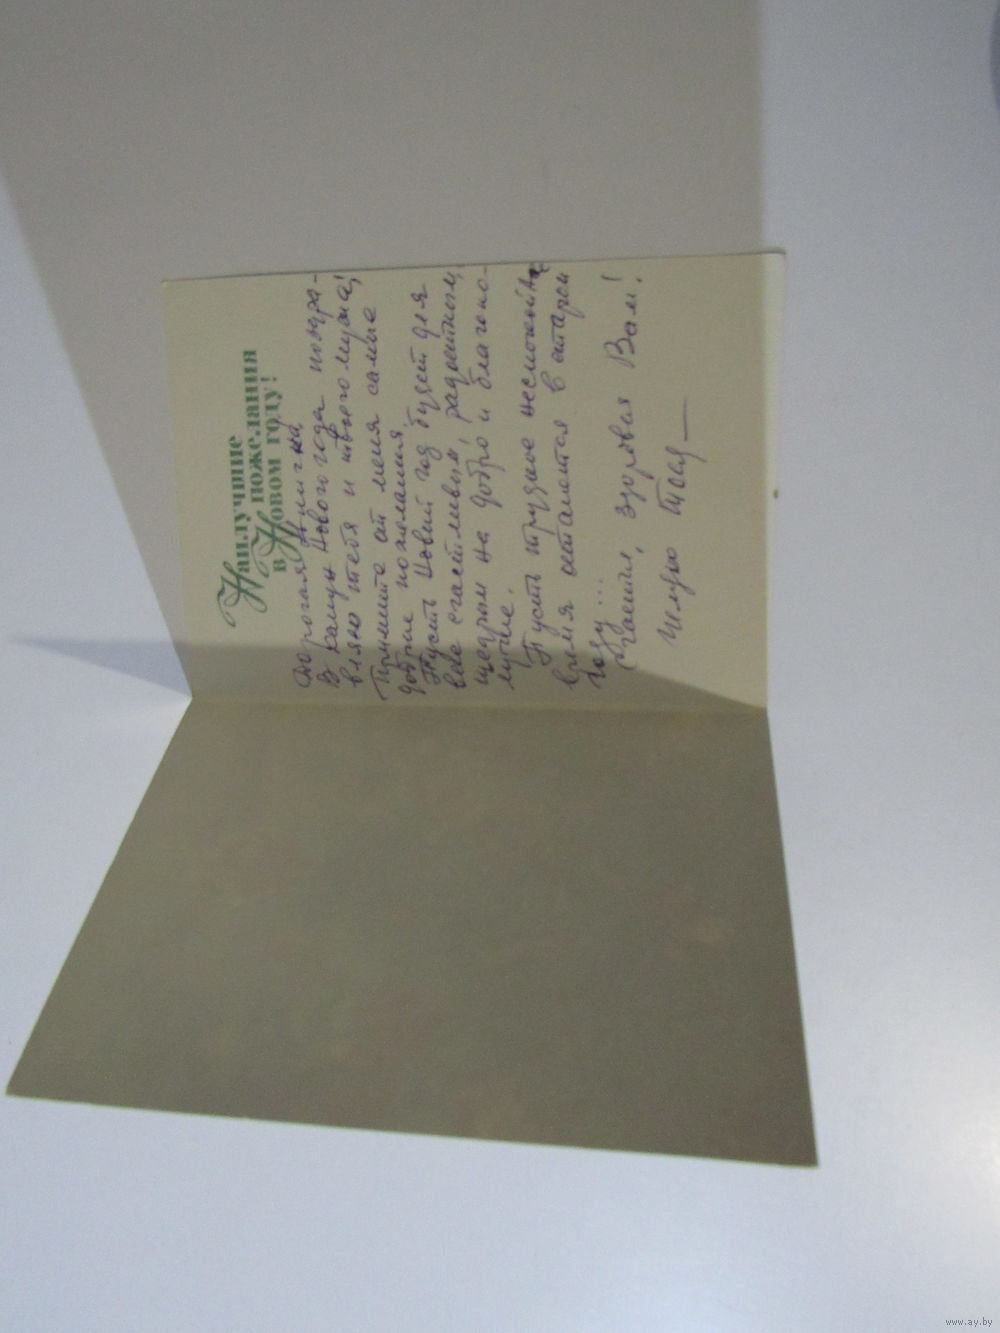 Наилучшие
пожелания
в Новом году!
Дорогая Ниночка
В канун Нового года поздра-
вляю тебя и твоего мужа!
Примите от меня самые
добрые пожелания.
Пусть Новый год будет для
вас счастливым, радостным,
щедрым на добро и благопо-
лучие.
Пусть трудное неспокойное
время останется в старом
году...
Счастья, здоровья Вам!
Целую Тася
www.ay.by